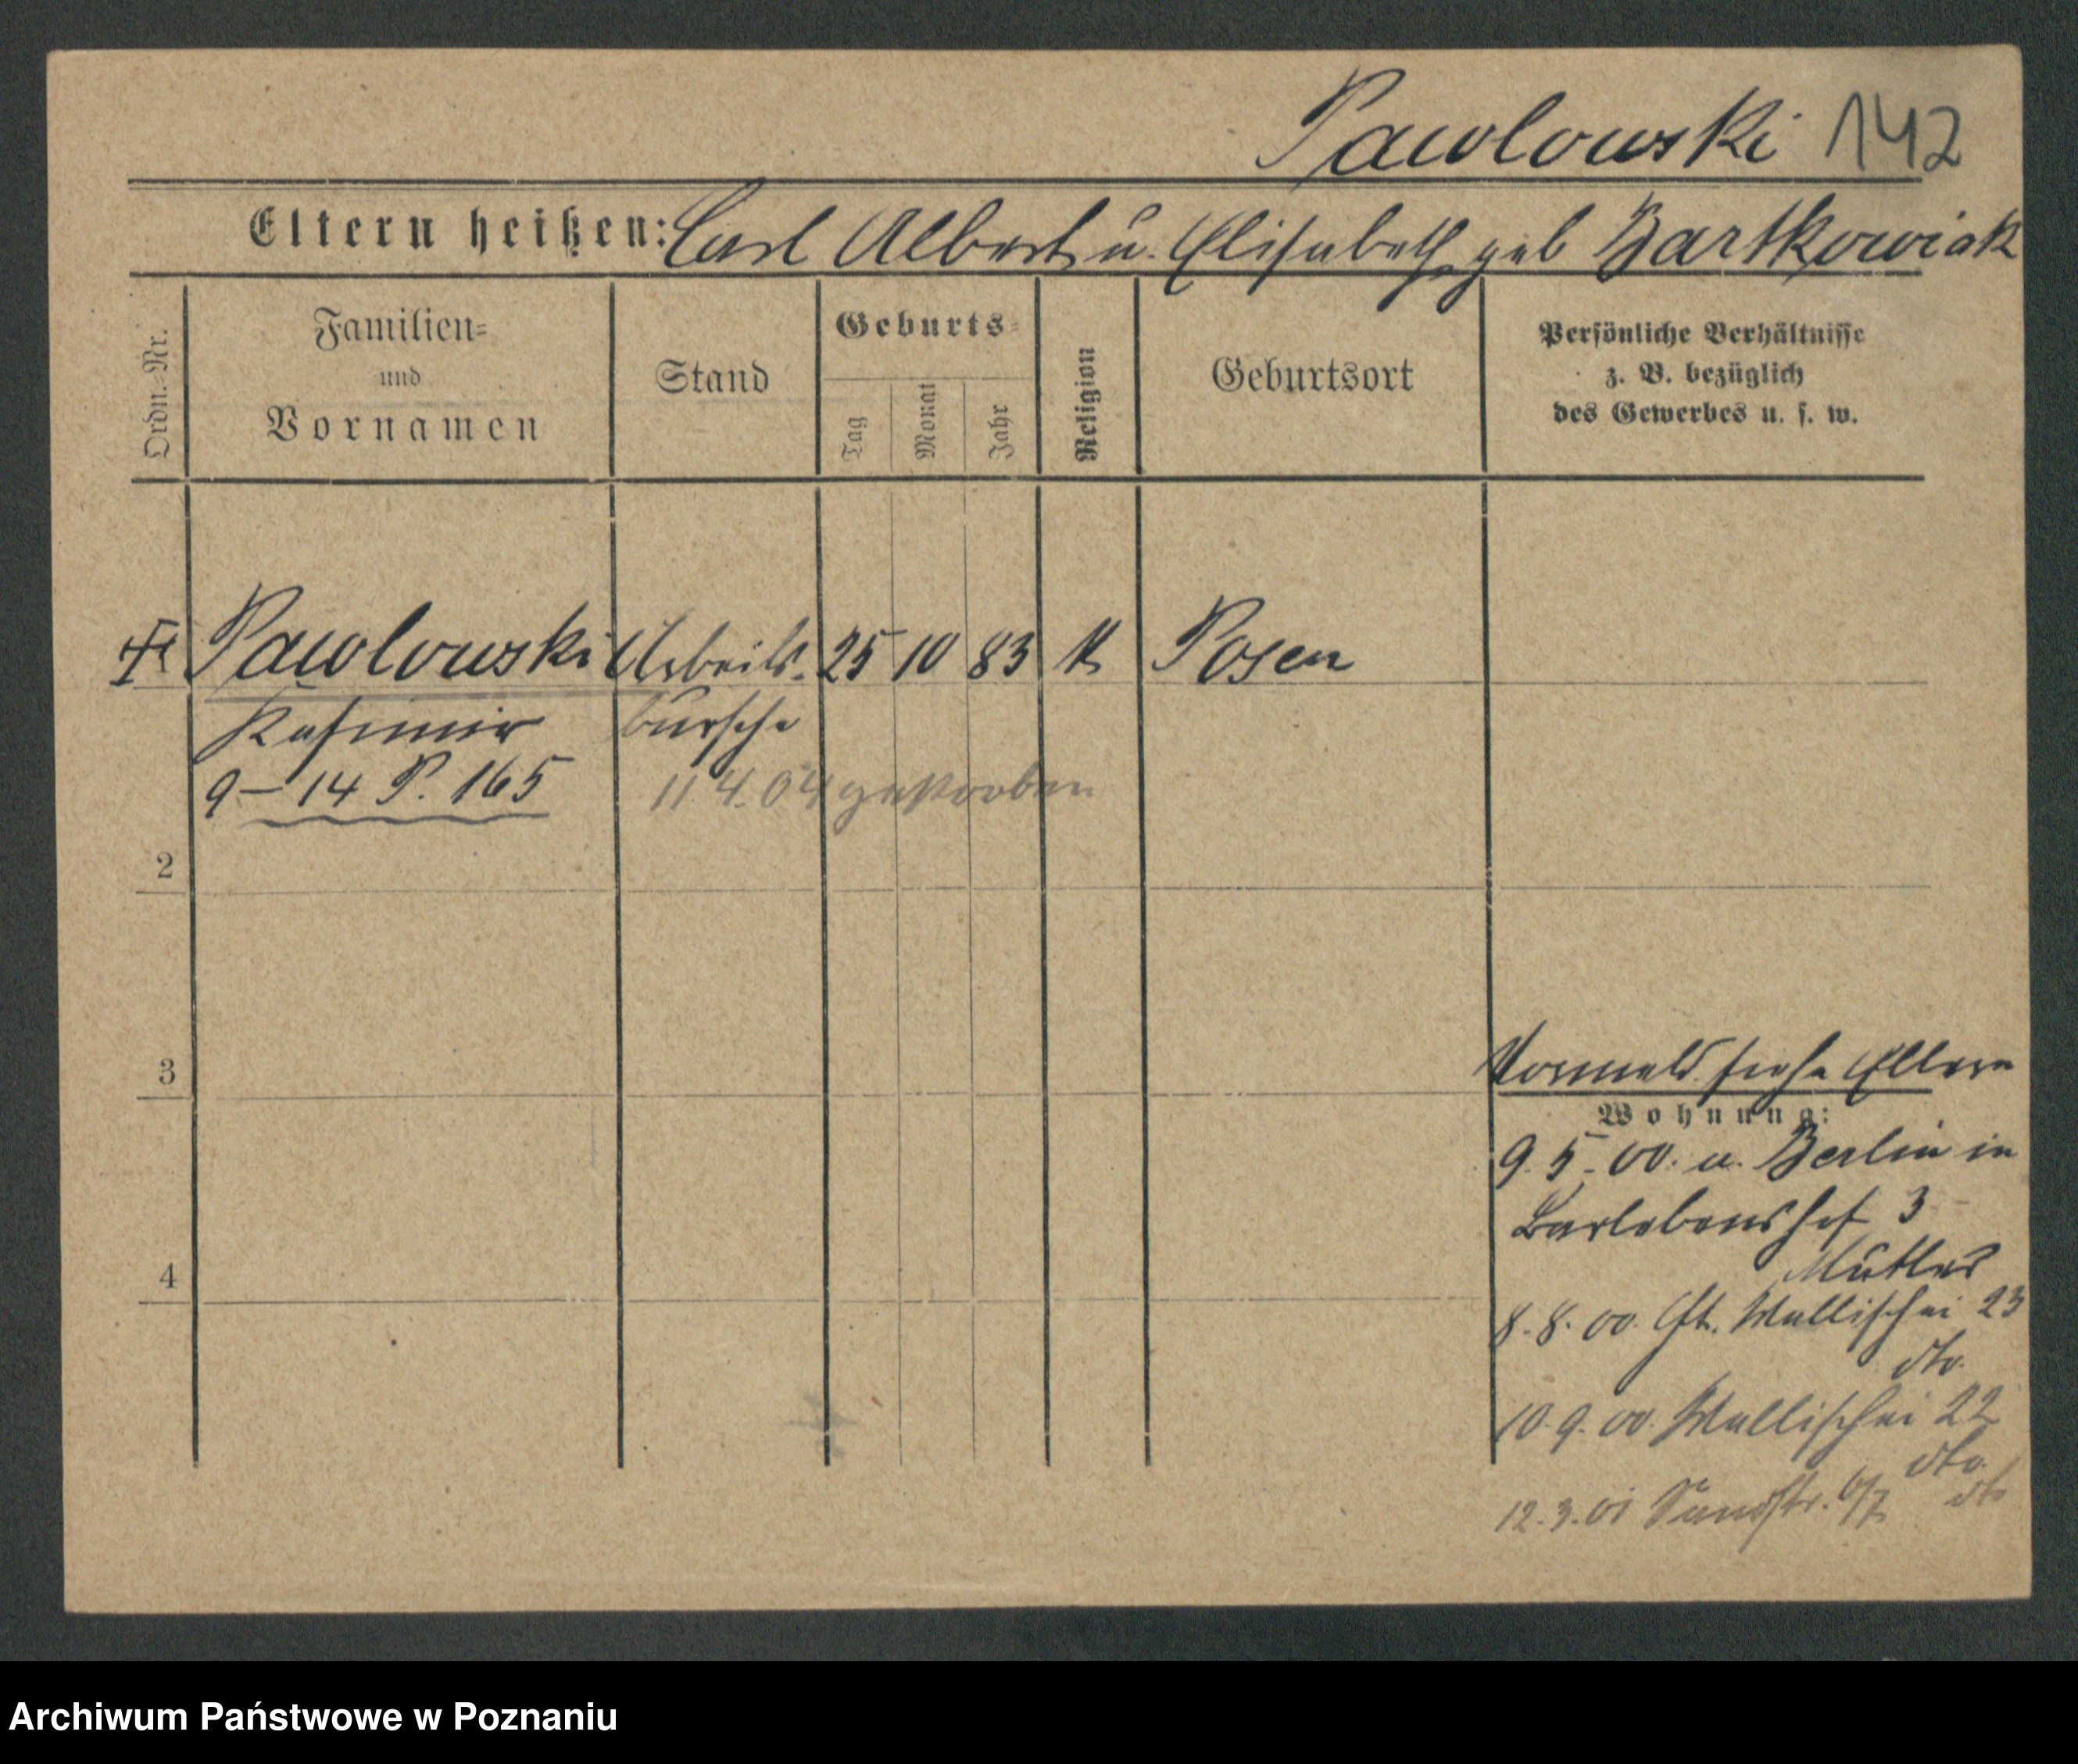 Pawlowski 142
Eltern heißen: Carl Albert u. Elisabeth geb Bartkowiak
Ordn.-Nr.
Familien-
und
Vornamen
Stand
Geburts-
Tag
Monat
Jahr
Religion
Geburtsort
Persönliche Verhältnisse
z. B. bezüglich
des Gewerbes u. s. w.
Pawlowski Arbeits- 25 10 83 K Posen
Kasimir bursche
9-14 P. 165 11 4. 04 gestorben
2
3
Vormeld. siehe Eltern
Wohnung:
9. 5. 00. u. Berlin in
Barlebenshof 3
4
Mutter
8. 8. 00. Wallischei 23
dto.
10. 9. 00. Wallischei 22
dto.
12. 3. 01 Sandstr. 6/7 dto
Archiwum Państwowe w Poznaniu